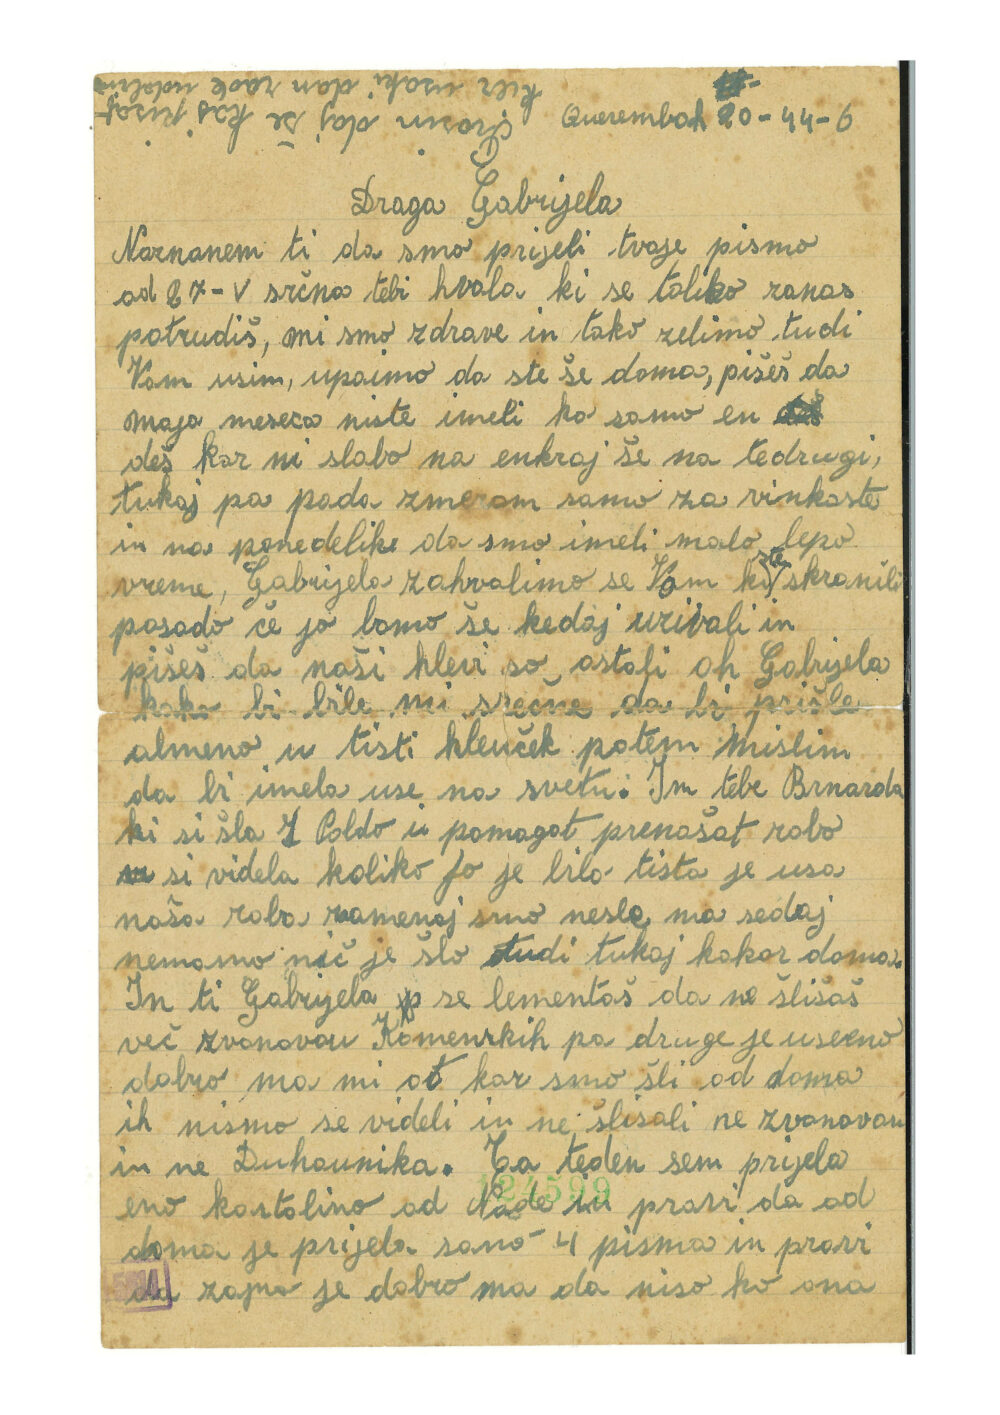 Prosim daj še kos kisaj
ker usaki dan rade
Querembah 20-44-6
Draga Gabrijela
Naznanem ti da smo prijeli tvoje pismo
od 27-V srčna tebi hvala ki se toliko zanas
potrudiš, mi smo zdrave in tako zelimo tudi
Vam usim, upaimo da ste še doma, pišeš da
maja meseca niste imeli ko samo en
deš kar ni slabo na enkraj še na tedrugi,
tukaj pa pada zmeram samo za vinkoste
in na ponedelike da smo imeli malo lepo
vreme, Gabrijela zahvalimo se Vam ki ste skranili
posado če jo bomo še kedaj uzivali in
pišeš da naši hlevi so ostali oh Gabrijela
kako bi bile mi srečne da bi prišle
almeno u tisti hleuček potem mislim
da bi imela use na svetu. In tebe Brnarda
ki si šla Z Poldo u pomagat prenašat robo
si videla koliko jo je bilo tista je usa
naša roba ramenaj smo nesle ma sedaj
nemamo nič je šlo tudi tukaj kakor doma.
In ti Gabrijela se lementaš da ne šlišaš
več zvonovou Komenskih pa druge je useeno
dobro ma mi od kar smo šli od doma
ih nismo se videli in ne šlisali ne zvonovou
in ne Duhounika. Ta teden sem prijela
eno kartolino od Nade in pravi da od
doma je prijela samo 4 pisma in pravi
da zajno je dobro ma da niso ko ona
124599